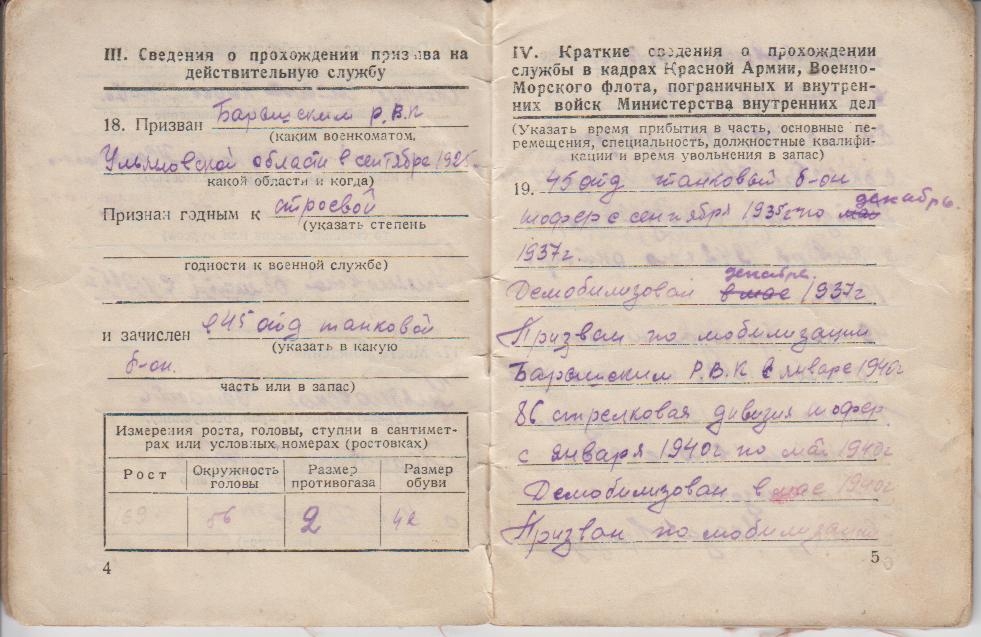 III. Сведения о прохождении призыва на
действительную службу
18. Призван Барышским Р.В.К
(каким военкоматом,
Ульяновской области в сентябре
какой области и когда)
Признан годным к строевой
(указать степень
годности к военной службе)
и зачислен в 45 отд танковой
(указать в какую
б-он.
часть или в запас)
Измерения роста, головы, ступни в сантимет-
рах или условных номерах (ростовках)
Рост
Окружность
головы
Размер
противогаза
Размер
обуви
69 56 2 42
4
IV. Краткие сведения о прохождении
службы в кадрах Красной Армии, Военно-
Морского флота, пограничных и внутрен-
них войск Министерства внутренних дел
(Указать время прибытия в часть, основные пе-
ремещения, специальность, должностные квалифи-
кации и время увольнения в запас)
19. 45 отд танковый б-он
декабрь.
шофер с сентября 1935г по май
1937г.
декабре.
Демобилизован в мае 1937г
Призван по мобилизации
Барышским Р.В.К в январе 1940г
86 стрелковая дивизия шофер
с января 1940г по май 1940г
Демобилизован в мае 1940г
Призван по мобилизации
5